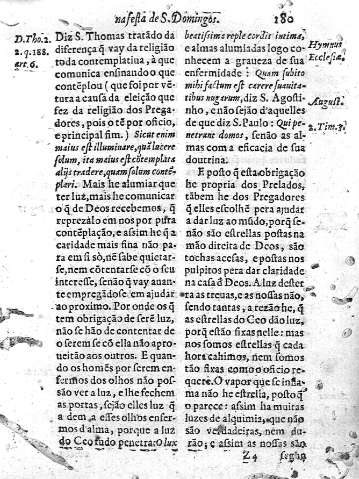 na festa de S. Domingos.
180
D. Tho. 2.
2. q. 188.
art. 6.
Diz S. Thomas tratādo da
diferença q̃ vay da religião
toda contemplatiua, à que
comunica ensinando o que
contēplou (que foi por vē-
tura a causa da eleição que
fez da religião dos Prega-
dores, pois o tē por oficio,
e principal fim.) Sicut enim
maius est illuminare, quā lucere
solum, ita maius est cōtemplata
alijs tradere, quam solum contē-
plari. Mais he alumiar que
ter luz, mais he comunicar
o q̃ de Deos recebemos, q̃
reprezálo em nos por pura
contēplação, e assim he q̃ a
caridade mais fina não pa-
ra em si só, nē sabe quietar-
se, nem cōtentarse cō o seu
interesse, senão q̃ vay auan-
te empregādose em ajudar
ao proximo. Por onde os q̃
tem obrigação de serē luz,
não se hão de contentar de
o serem se cō ella não apro-
ueitão aos outros. E quan-
do os homēs por serem en-
fermos dos olhos não pos-
são ver a luz, e lhe fechem
as portas, sejão elles luz q̃
a dem, a esses olhos enfer-
mos d'alma, porque a luz
do Ceo tudo penetra: O lux
beatissima reple cordis intima,
e almas alumiadas logo co-
nhecem a graueza de sua
enfermidade: Quam subito
mihi factum est carere suauita-
tibus nugarum, diz S. Agosti-
nho, e não sejão d'aquelles
de que diz S. Paulo: Qui pe-
netrant domos, senão as al-
mas com a eficacia de sua
doutrina.
E posto q̃ esta obrigação
he propria dos Prelados,
tābem he dos Pregadores
q̃ elles escolhē pera ajudar
a dar luz ao mūdo, porq̃ se-
não são estrellas postas na
mão direita de Deos, são
tochas acesas, e postas nos
pulpitos pera dar claridade
na casa d'Deos. A luz dester
ra as treuas, e as nossas não,
sendo tantas, a rezão he, q̃
as estrellas do Ceo dão luz,
porq̃ estão fixas nelle: mas
nos somos estrellas q̃ cada
hora cahimos, nem somos
tão fixas como o oficio re-
quere. O vapor que se infla-
ma não he estrella, posto q̃
o parece: assim ha muitas
luzes de alquimia, que não
são verdadeiras, nem du-
rão; e assim as nossas são
Hymnus
Ecclesiæ.
August.
2. Tim. 3.
Z 4
segūn